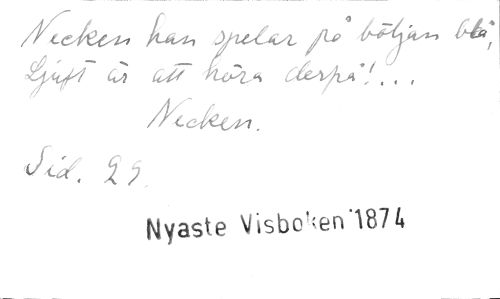 Necken han spelar på böljan blå,
Ljuft är att höra derpå!...
Necken.
Sid. 29.
Nyaste Visboken 1874